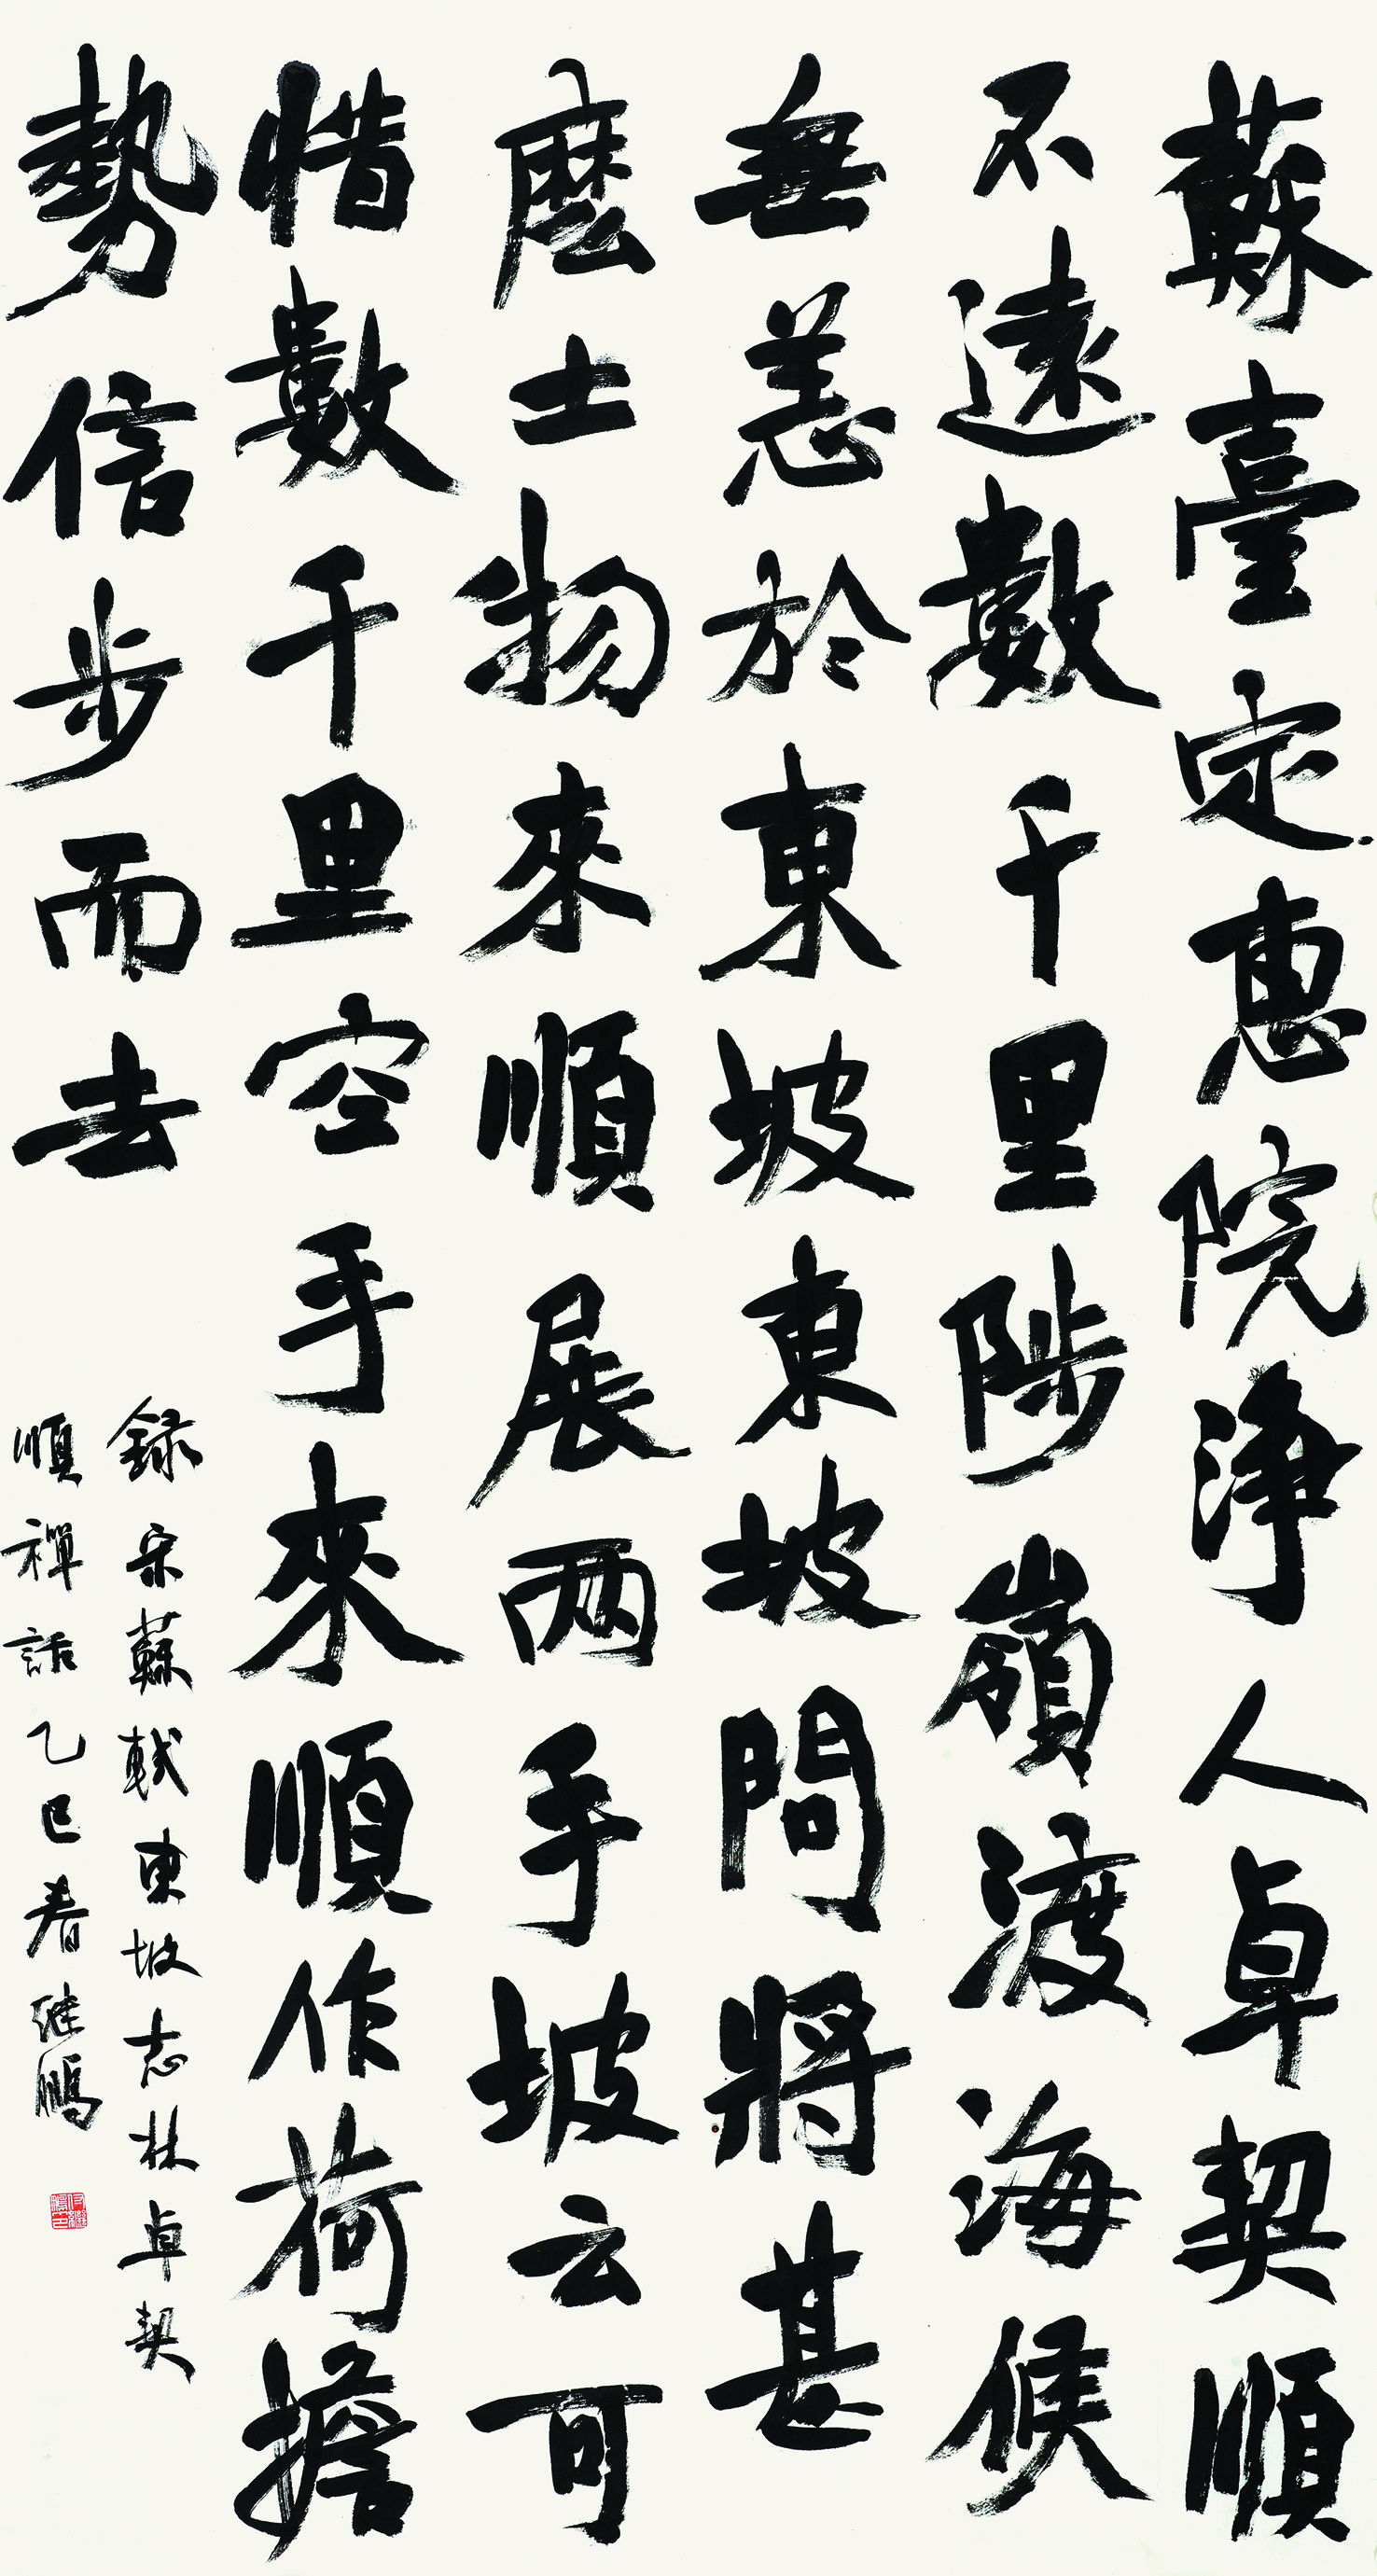 蘇臺定惠院淨人卓契順
不遠數千里陟嶺渡海候
無恙於東坡東坡問將甚
麼土物來順展两手坡云可
惜數千里空手來順作荷擔
勢信步而去
録宋蘇軾東坡志林卓契
順禪話乙巳春继鵬